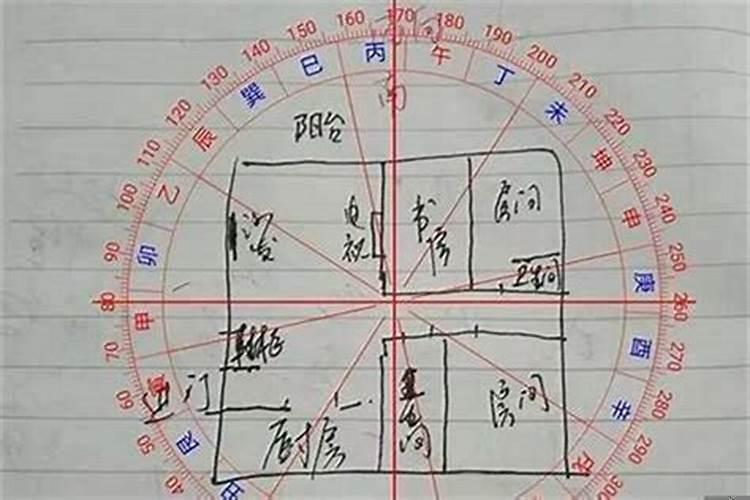 160 170 180
150 190
140 200
130 210
120 220
110 230
100 240
90 250
80 260
70 270
60 280
50 290
40 300
巽 巳 丙 午 丁 未 坤 申 庚 酉 辛 戌
辰 乙 卯 甲
南
阳台
沙发
电视
书房
房间
卫生间
鞋柜
进门
厨房
卫生间
房间